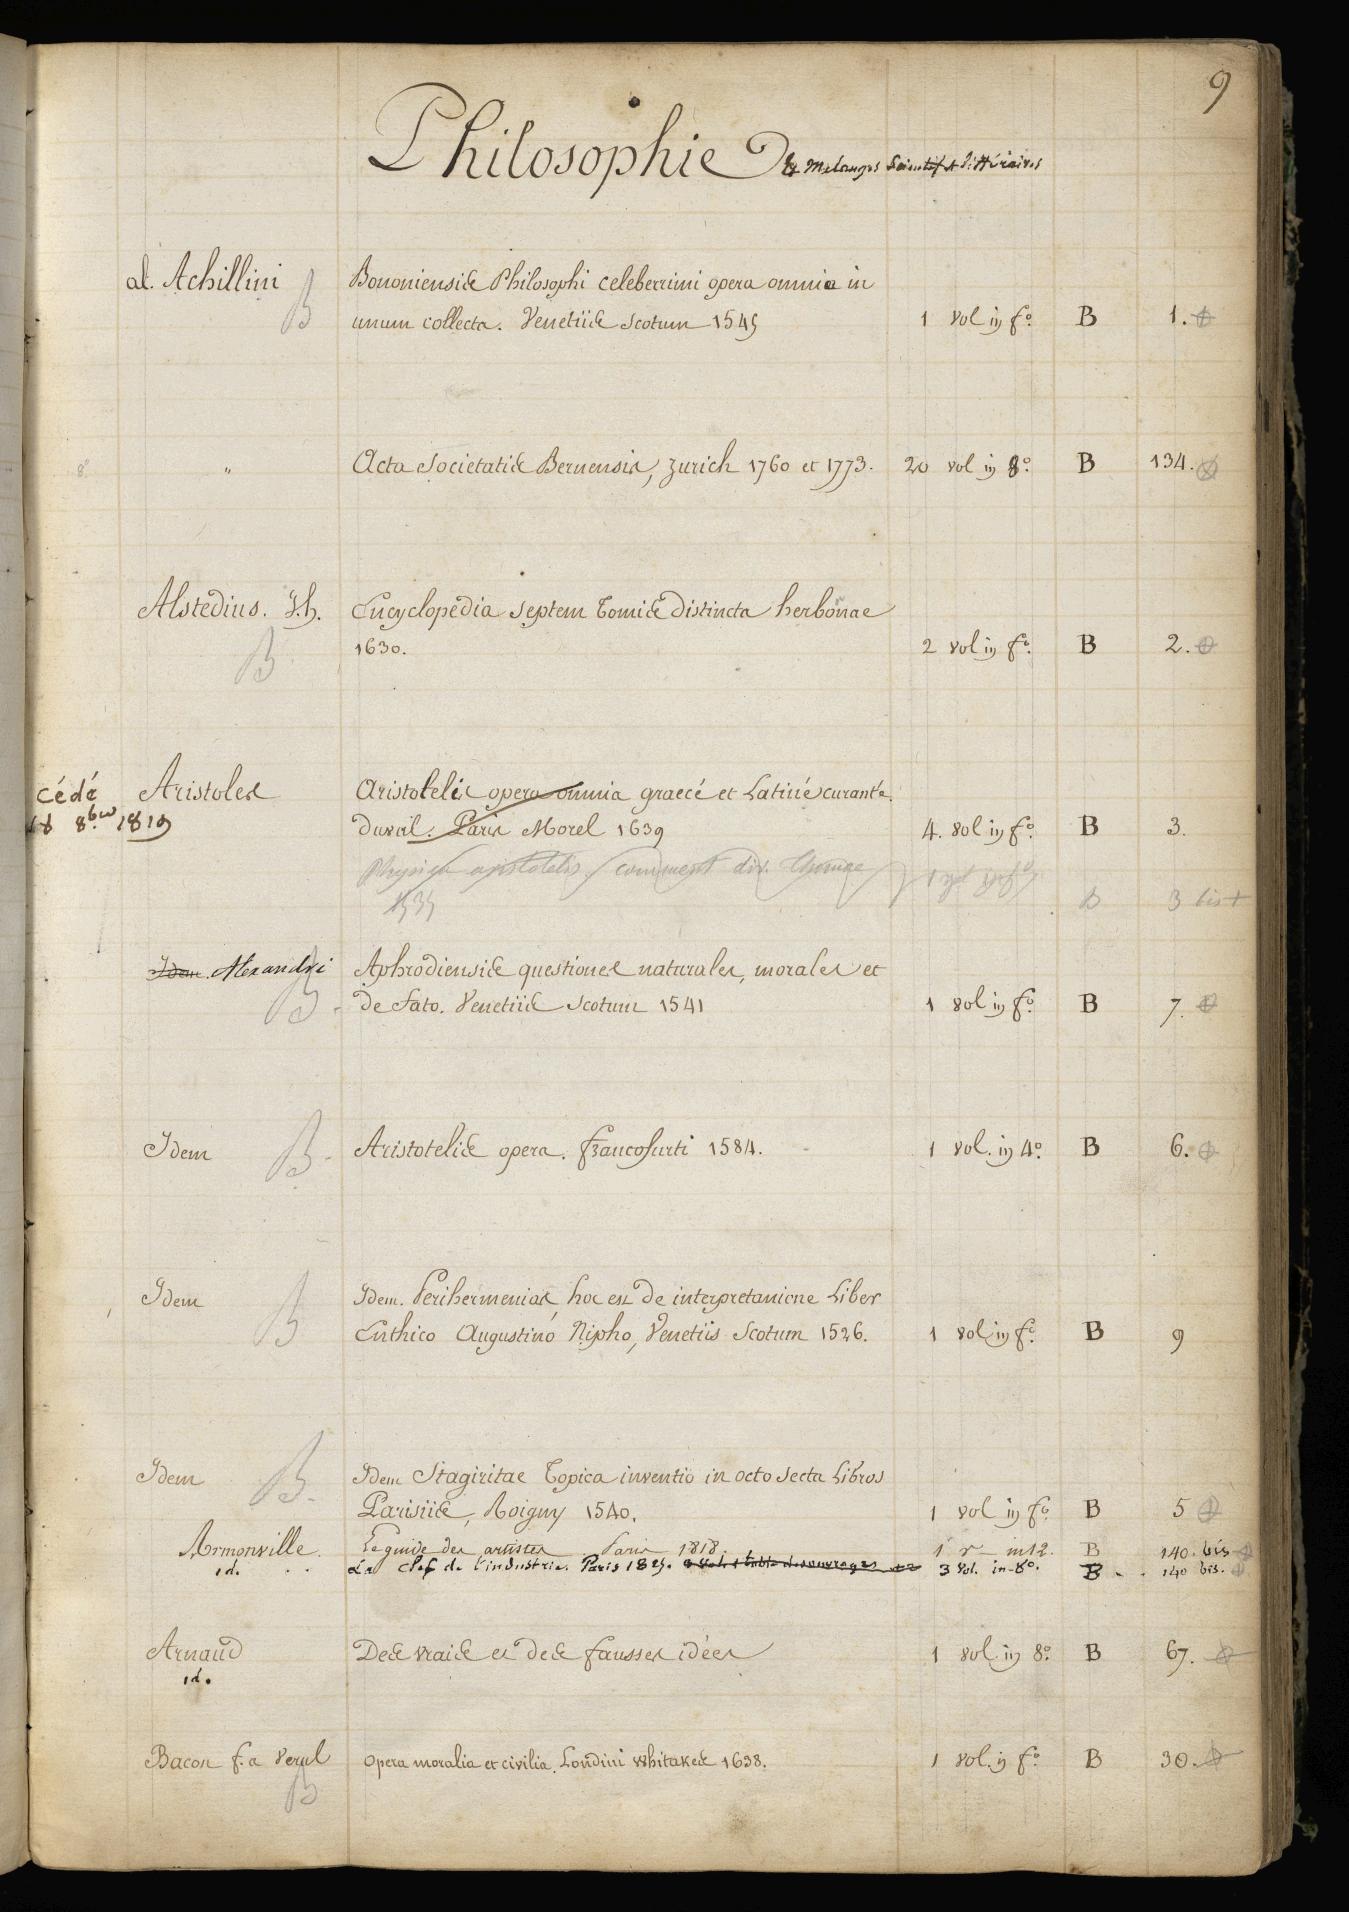 9
Philosophie & Melanges Scientif et littéraires
al. Achillini B Bononiensis Philosophi celeberrimi opera omnia in
unum collecta. Venetiis Scotum 1545 1 vol in f.° B 1.
8° " Acta societatis Bernensis, zurich 1760 et 1773. 20 vol in 8°. B 134.
Alstedius. J.h. Encyclopedia septem tomis distincta herbonae
B 1630. 2 vol in f.° B 2.
cédé Aristoles Aristotelis opera omnia graecé et Latiné curante
18 8.bre 1819 duval. Paris Morel 1639 4. vol in f.° B 3.
Physica aristotelis comment div. Thomae 1 vol in f°
1535 B 3 bis +
Idem. Alexandri Aphrodiensis questiones naturales, morales et
B de fato. Venetiis Scotum 1541 1 vol in f.° B 7.
Idem B Aristotelis opera. francofurti 1584. 1 vol. in 4.° B 6.
Idem B Idem. Perihermenias, hoc est de interpretanione Liber
Enthico Augustino Nipho, Venetiis Scotum 1526. 1 vol in f.° B 9
Idem B. Idem Stagiritae Topica inventio in octo secta Libros
Parisiis, Roigny 1540. 1 vol in f.° B 5
Armonville. Le guide des artistes Paris 1818. 1 v in 12. B 140. bis
id. La Clef de l'industrie. Paris 1825. 3 vol. in-8°. B 140 bis.
Arnaud Des vrais et des fausses idées 1 vol in 8.° B 67.
id.
Bacon f. a Verul Opera moralia et civilia. Londini Whitakes 1638. 1 vol. in f.° B 30.
B